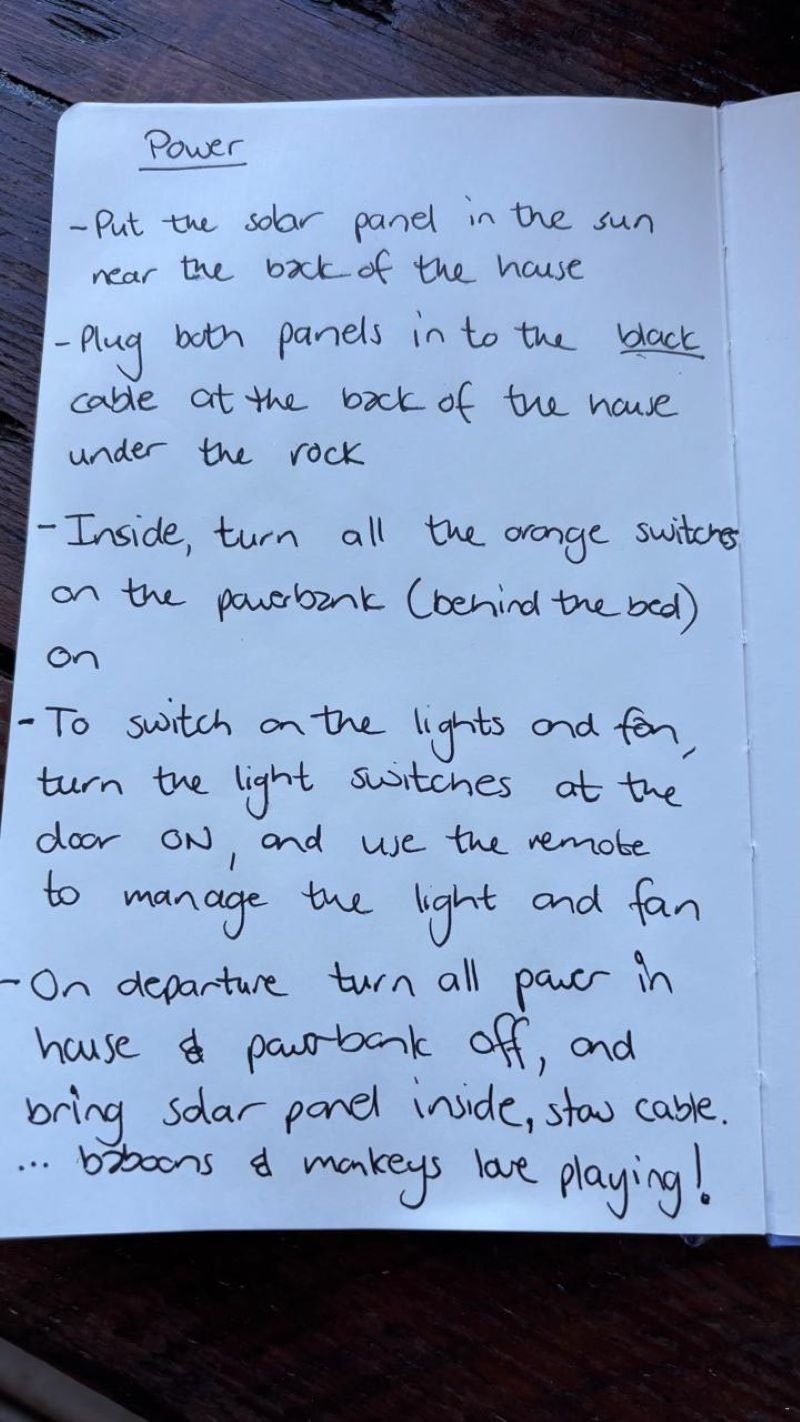 Power
- Put the solar panel in the sun
near the back of the house
- Plug both panels in to the black
cable at the back of the house
under the rock
- Inside, turn all the orange switches
on the powerbank (behind the bed)
on
- To switch on the lights and fan,
turn the light switches at the
door ON, and use the remote
to manage the light and fan
- On departure turn all power in
house & powerbank off, and
bring solar panel inside, stow cable.
... baboons & monkeys love playing!